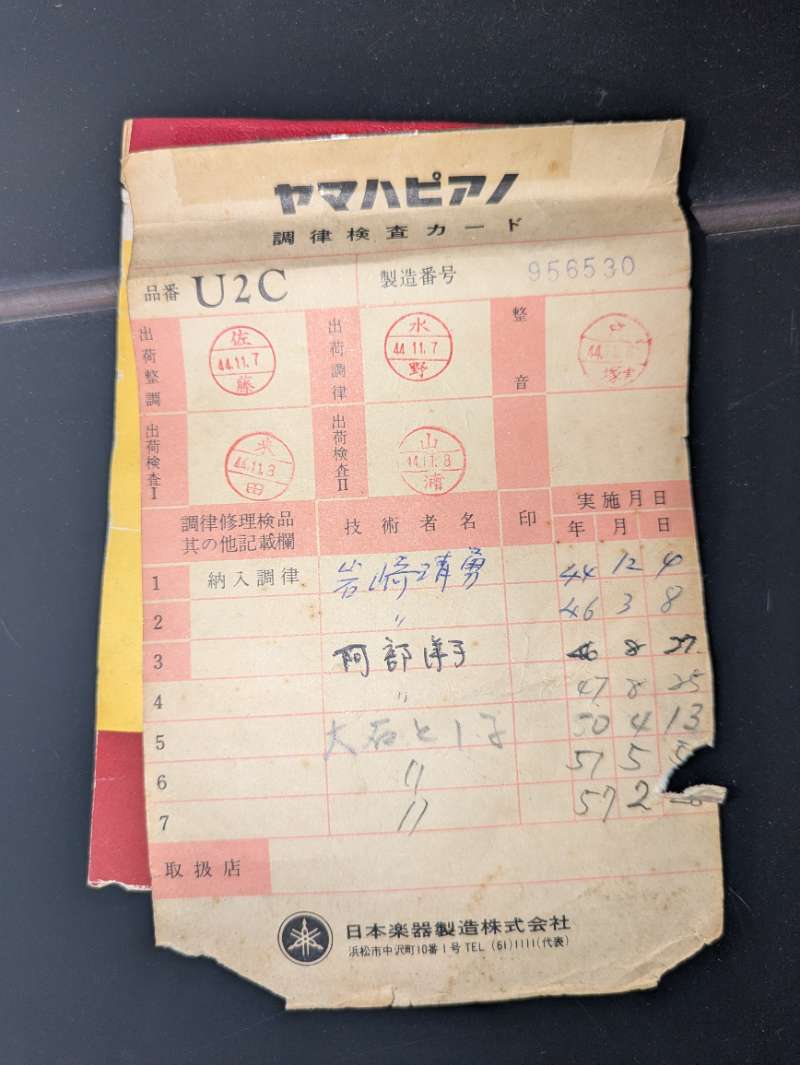 ヤマハピアノ
調律検査カード
品番 U2C 製造番号 956530
出荷整調 佐藤 44.11.7 出荷調律 水野 44.11.7 整音 44. 塚
出荷検査I 米田 44.11.8 出荷検査II 山浦 44.11.8
調律修理検品其の他記載欄 技術者名 印 実施月日
年 月 日
1 納入調律 岩崎靖勇 44 12 4
2 〃 46 3 8
3 阿部洋子 46 8 27
4 〃 47 8 25
5 大石とし子 50 4 13
6 〃 51 5
7 〃 57 2
取扱店
日本楽器製造株式会社
浜松市中沢町10番1号 TEL (61) 1111 (代表)